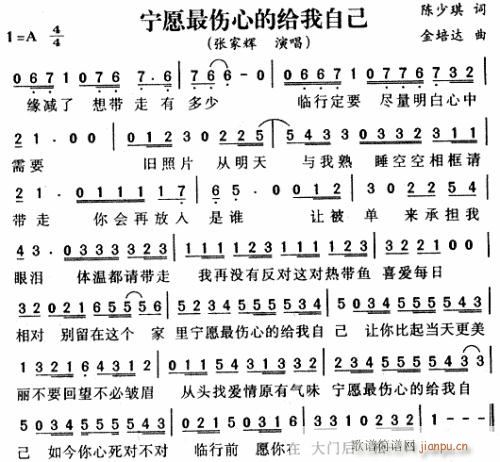 宁愿最伤心的给我自己
1=A 4/4
(张家辉 演唱)
陈少琪 词
金培达 曲
0 6 7 1 0 7 6 7·6 7 6 6 - 0 0 6 7 1 0 7 6 0 7 6 7 3 2
缘减了 想带 走有 多少 临行定要 尽量明白心中
2 1· 0 0 0 1 2 3 0 2 2 5 5 4 3 3 0 3 3 2 1 2 3 1
需要 旧照片 从明天 与我熟 睡空空相框请
2 1· 0 1 1 1 1 7 6 5· 0 0 1 2 3 0 2 2 5 4
带走 你会再放入 是谁 让被 单 来承担我
4 3· 0 3 3 3 3 2 3 0 1 1 1 1 2 3 1 2 3 1 2 2 1 0 0
眼泪 体温都请带走 我再没有反对这对热带鱼 喜爱每日
3 2 0 2 1 6 5 5 5 6 5 0 5 4 3 4 3 4 3 2 1 5 5 0 5 4 3 4 3 2 1
相对 别留在这个 家 里宁愿最伤心的给我自 己 让你比起当天更美
1 3 2 1 6 4 3 1 2 0 1 1 5 4 3 1 3 2 0 5 4 3 4 5 4 3 3
丽不要回望不必皱眉 从头找爱情原有气味 宁愿最伤心的给我自
5 0 5 4 3 4 3 4 3 2 0 2 1 6 5 3 3 1 0 2 3 2 1 - - -
己 如今你心死对不对 临行前 愿你在 大门后
歌谱简谱网
jianpu.cn